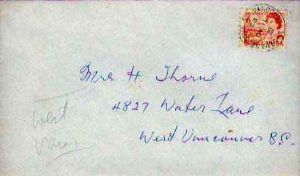 Mrs H. Thorne
4827 Water Lane
West Vancouver B.C.
West
Van